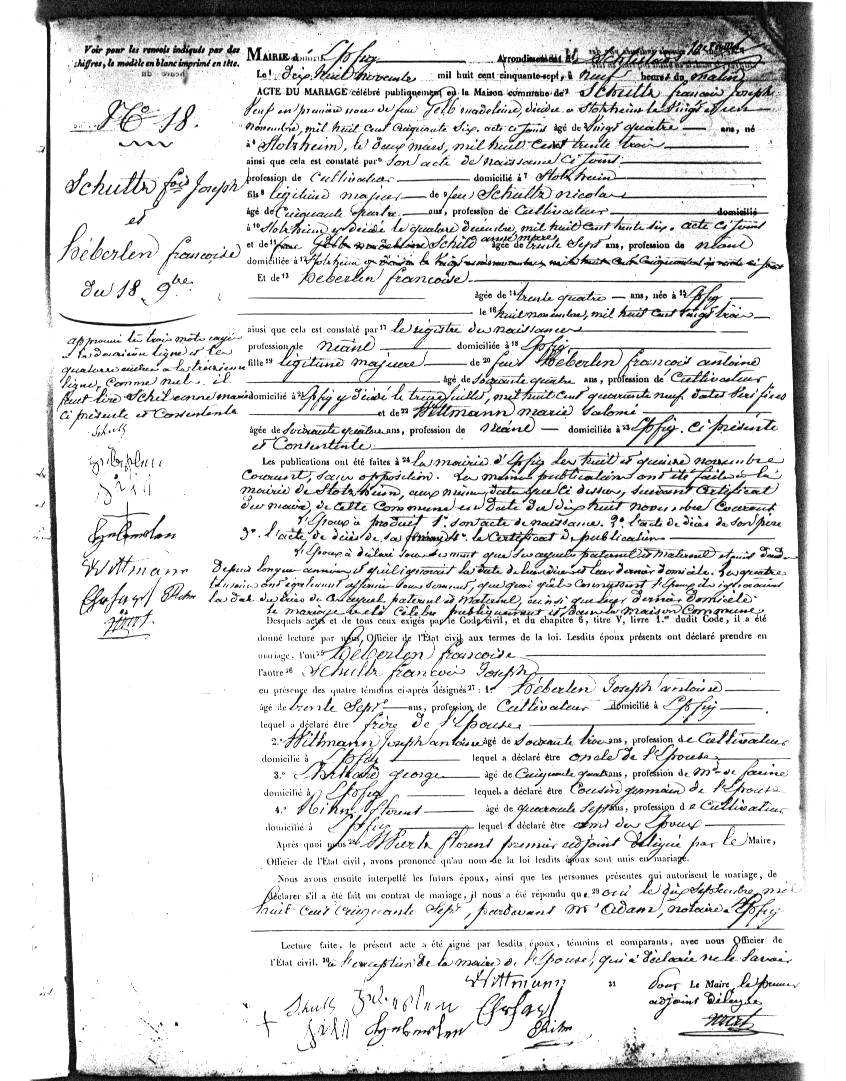 Voir pour les renvois indiqués par des
chiffres, le modèle en blanc imprimé en tête.
MAIRIE d' Epfig Arrondissement de Schlestadt
Le 1 dix huit novembre mil huit cent cinquante-sept, à neuf heures du matin
ACTE DU MARIAGE célébré publiquement en la Maison commune de Schultz françois Joseph
Veuf en première noce de feue Gelb madeleine, décédée à Stotzheim le vingt
novembre, mil huit Cent Cinquante Six, acte ci joint âgé de vingt quatre ans, né
à Stotzheim, le deux mars, mil huit cent trente trois
ainsi que cela est constaté par son acte de naissance ci joint
profession de Cultivateur domicilié à 7 Stotzheim
fils 8 légitime majeur de 9 feu Schultz nicolas
âgé de Cinquante quatre ans, profession de Cultivateur domicilié
à 10 Stotzheim y décédé le quatre décembre, mil huit cent trente six, acte ci joint
et de 11 Schild anne marie âgée de trente Sept ans, profession de néant
domiciliée à 12 Stotzheim
Et de 13 héberlen françoise
âgée de 14 trente quatre ans, née à 15 Epfig
le 16 huit novembre, mil huit cent vingt trois
ainsi que cela est constaté par 17 le registre des naissances
profession de néant domiciliée à 18 Epfig
fille 19 légitime majeure de 20 feu héberlen françois antoine
âgé de soixante quatre ans, profession de Cultivateur
domicilié à Epfig y décédé le treize juillet, mil huit cent quarante neuf dates vérifiées
et de 22 Wittmann marie Salomé
âgée de soixante quatre ans, profession de néant domiciliée à 23 Epfig, ci présente
et Consentente
Les publications ont été faites à 24 la mairie d'Epfig les huit et quinze novembre
Courant, sans opposition. Les mêmes publications ont été faites à la
mairie de Stotzheim, aux mêmes dates que ci dessus, suivant Certificat
du maire de cette Commune en date du dix huit novembre Courant
l'Epoux à produit 1° son acte de naissance. 2° l'acte de décès de son père
3° l'acte de décès de sa femme, 4° le Certificat de publication
l'Epoux à déclaré sous serment que ses ayeuls paternels et maternels
Depuis longues années, et qu'il ignorait la date de leur décès et leur dernier domicile. Les quatre
témoins ont également affirmé sous serment, que quoi qu'ils Connaissent l'Epoux
la date du décès de ses ayeuls paternels et maternels, ainsi que leur dernier domicile
le mariage a été Célébré publiquement et dans la maison Commune
Desquels actes et de tous ceux exigés par le Code civil, et du chapitre 6, titre V, livre 1.er dudit Code, il a été
donné lecture par nous, Officier de l'État civil aux termes de la loi. Lesdits époux présents ont déclaré prendre en
mariage, l'un 25 héberlen françoise
l'autre 26 Schultz françois Joseph
en présence des quatre témoins ci-après désignés 27 : 1.° héberlen Joseph antoine
âgé de trente Sept ans, profession de Cultivateur domicilié à Epfig
lequel a déclaré être frère de l'Epouse
2.° Wittmann Joseph antoine âgé de soixante trois ans, profession de Cultivateur
domicilié à Epfig lequel a déclaré être oncle de l'Epouse
3.° george âgé de Cinquante quatre ans, profession de M.d de farine
domicilié à Epfig lequel a déclaré être Cousin germain de l'Epouse
4.° florent âgé de quarante Sept ans, profession de Cultivateur
domicilié à Epfig lequel a déclaré être ami des Epoux
Après quoi nous 28 florent premier adjoint délégué par le Maire,
Officier de l'État civil, avons prononcé qu'au nom de la loi lesdits époux sont unis en mariage.
Nous avons ensuite interpellé les futurs époux, ainsi que les personnes présentes qui autorisent le mariage, de
déclarer s'il a été fait un contrat de mariage, il nous a été répondu que 29 oui le dix Septembre mil
huit cent cinquante Sept, pardevant M.e Adam, notaire à Epfig
Lecture faite, le présent acte a été signé par lesdits époux, témoins et comparants, avec nous Officier de
l'État civil. 30 à l'exception de la mère de l'Epouse, qui à déclaré ne le savoir
Wittmann
31 Pour Le Maire, le premier
adjoint délégué
Schultz
N° 18.
Schultz f.ois Joseph
et
héberlen françoise
du 18 9.bre
approuvé les trois mots rayés
à la douzième ligne et les
ligne, comme nuls. il
faut lire Schild anne marie
ci présente et Consentente
Schultz
Wittmann